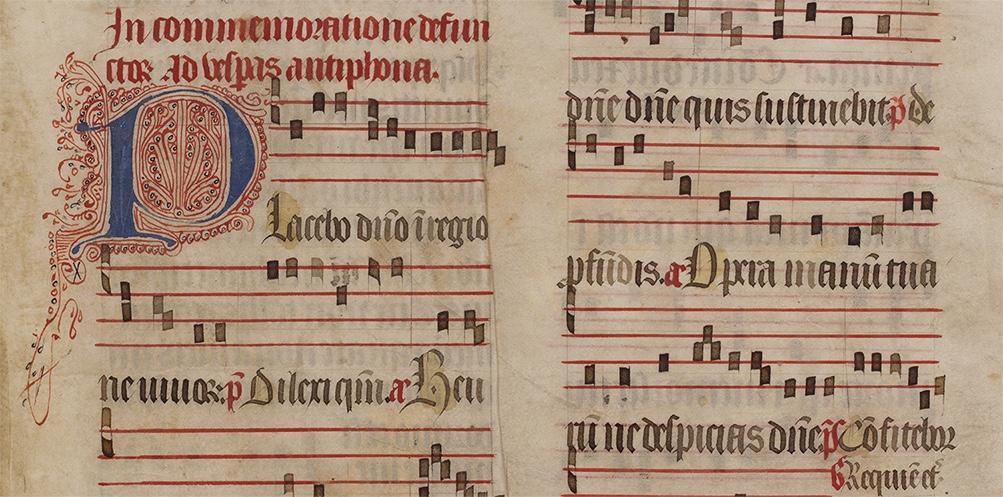 In commemoratione defun
ctoꝝ Ad vespas antiphona.
Placebo dn̄o ī regio
ne viuoꝝ: p̄ Dilexi qm̄. a Heu
dn̄e dn̄e quis sustinebit p̄ de
ꝓfūdis. a Opera manuū tua
rū ne despicias dn̄e p̄s Cōfitebor
Requiē et